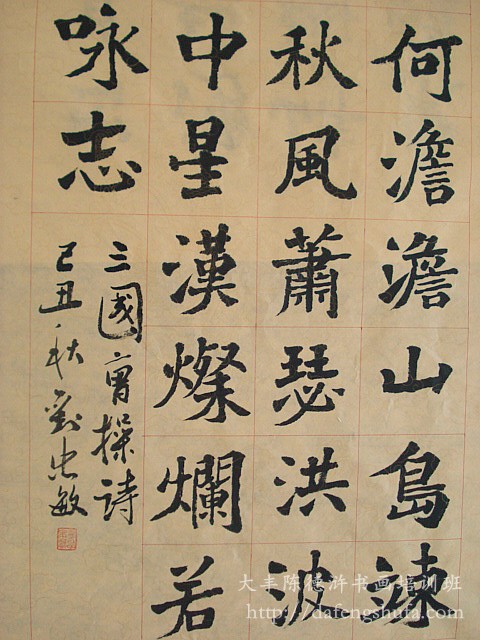 何澹澹山島竦
秋風蕭瑟洪波
中星漢燦爛若
咏志
三國曹操詩
己丑秋劉忠敏
大丰陈德浒书画培训班
http://dafengshufa.com/